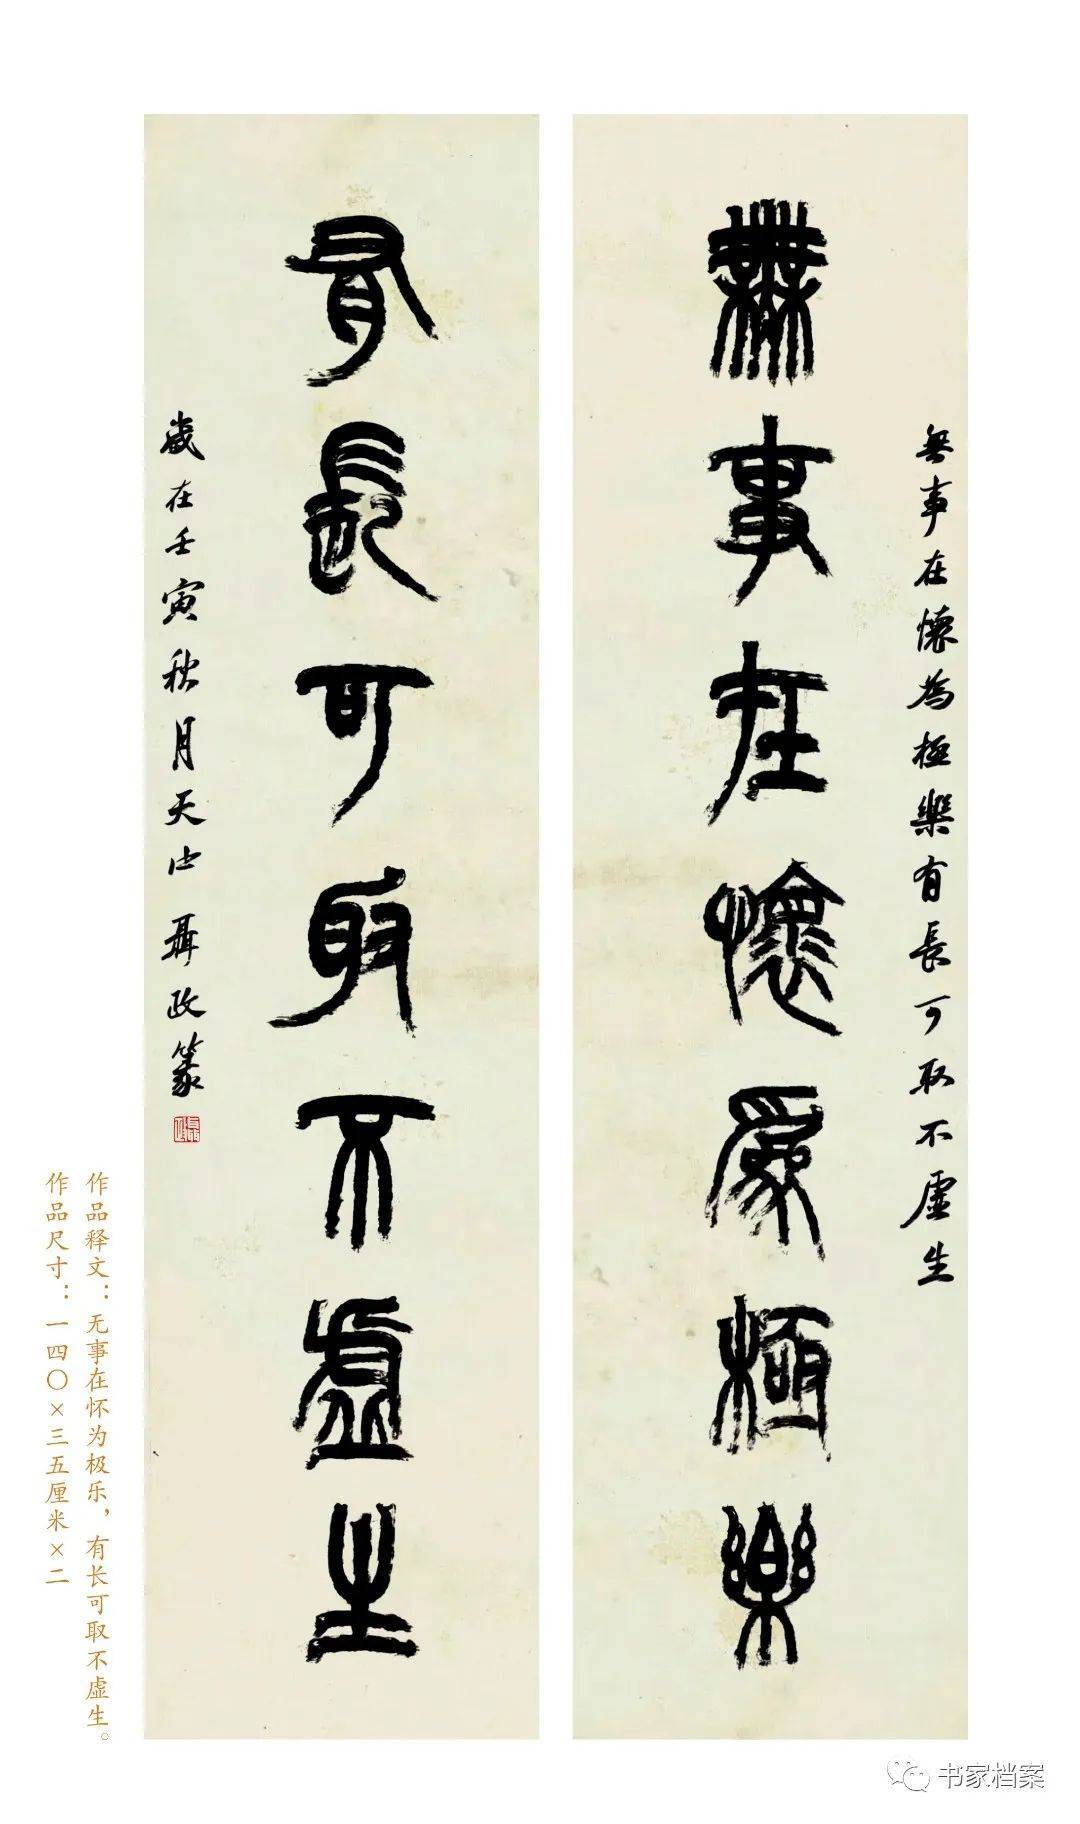 無事在懷為極樂有長可取不虛生
無事在懷爲極樂
有長可取不虛生
歲在壬寅秋月天山聶政篆
作品释文：无事在怀为极乐，有长可取不虚生。
作品尺寸：一四〇×三五厘米×二
书家档案